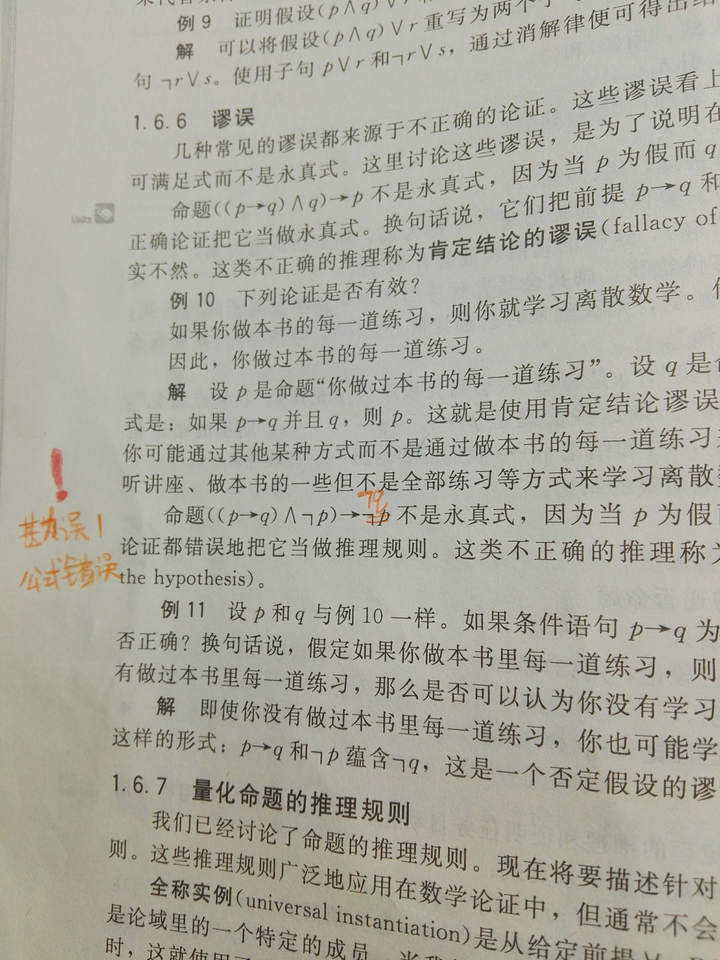 例 9 证明假设(p∧q)∨r
解 可以将假设(p∧q)∨r重写为两个子
句¬r∨s。使用子句 p∨r 和¬r∨s，通过消解律便可得出结
1.6.6 谬误
几种常见的谬误都来源于不正确的论证。这些谬误看上
可满足式而不是永真式。这里讨论这些谬误，是为了说明在
命题((p→q)∧q)→p 不是永真式，因为当 p 为假而 q
正确论证把它当做永真式。换句话说，它们把前提 p→q 和
实不然。这类不正确的推理称为肯定结论的谬误(fallacy of
例 10 下列论证是否有效？
如果你做本书的每一道练习，则你就学习离散数学。
因此，你做过本书的每一道练习。
解 设 p 是命题“你做过本书的每一道练习”。设 q 是命
式是：如果 p→q 并且 q，则 p。这就是使用肯定结论谬误
你可能通过其他某种方式而不是通过做本书的每一道练习
听讲座、做本书的一些但不是全部练习等方式来学习离散数
¬q
命题((p→q)∧¬p)→¬p 不是永真式，因为当 p 为假
论证都错误地把它当做推理规则。这类不正确的推理称为
the hypothesis)。
！
勘误！
公式错误
例 11 设 p 和 q 与例 10 一样。如果条件语句 p→q 为
否正确？换句话说，假定如果你做本书里每一道练习，则
有做过本书里每一道练习，那么是否可以认为你没有学习
解 即使你没有做过本书里每一道练习，你也可能学
这样的形式：p→q 和¬p 蕴含¬q，这是一个否定假设的谬
1.6.7 量化命题的推理规则
我们已经讨论了命题的推理规则。现在将要描述针对
则。这些推理规则广泛地应用在数学论证中，但通常不会
全称实例(universal instantiation)是从给定前提
是论域里的一个特定的成员。
时，这就使用